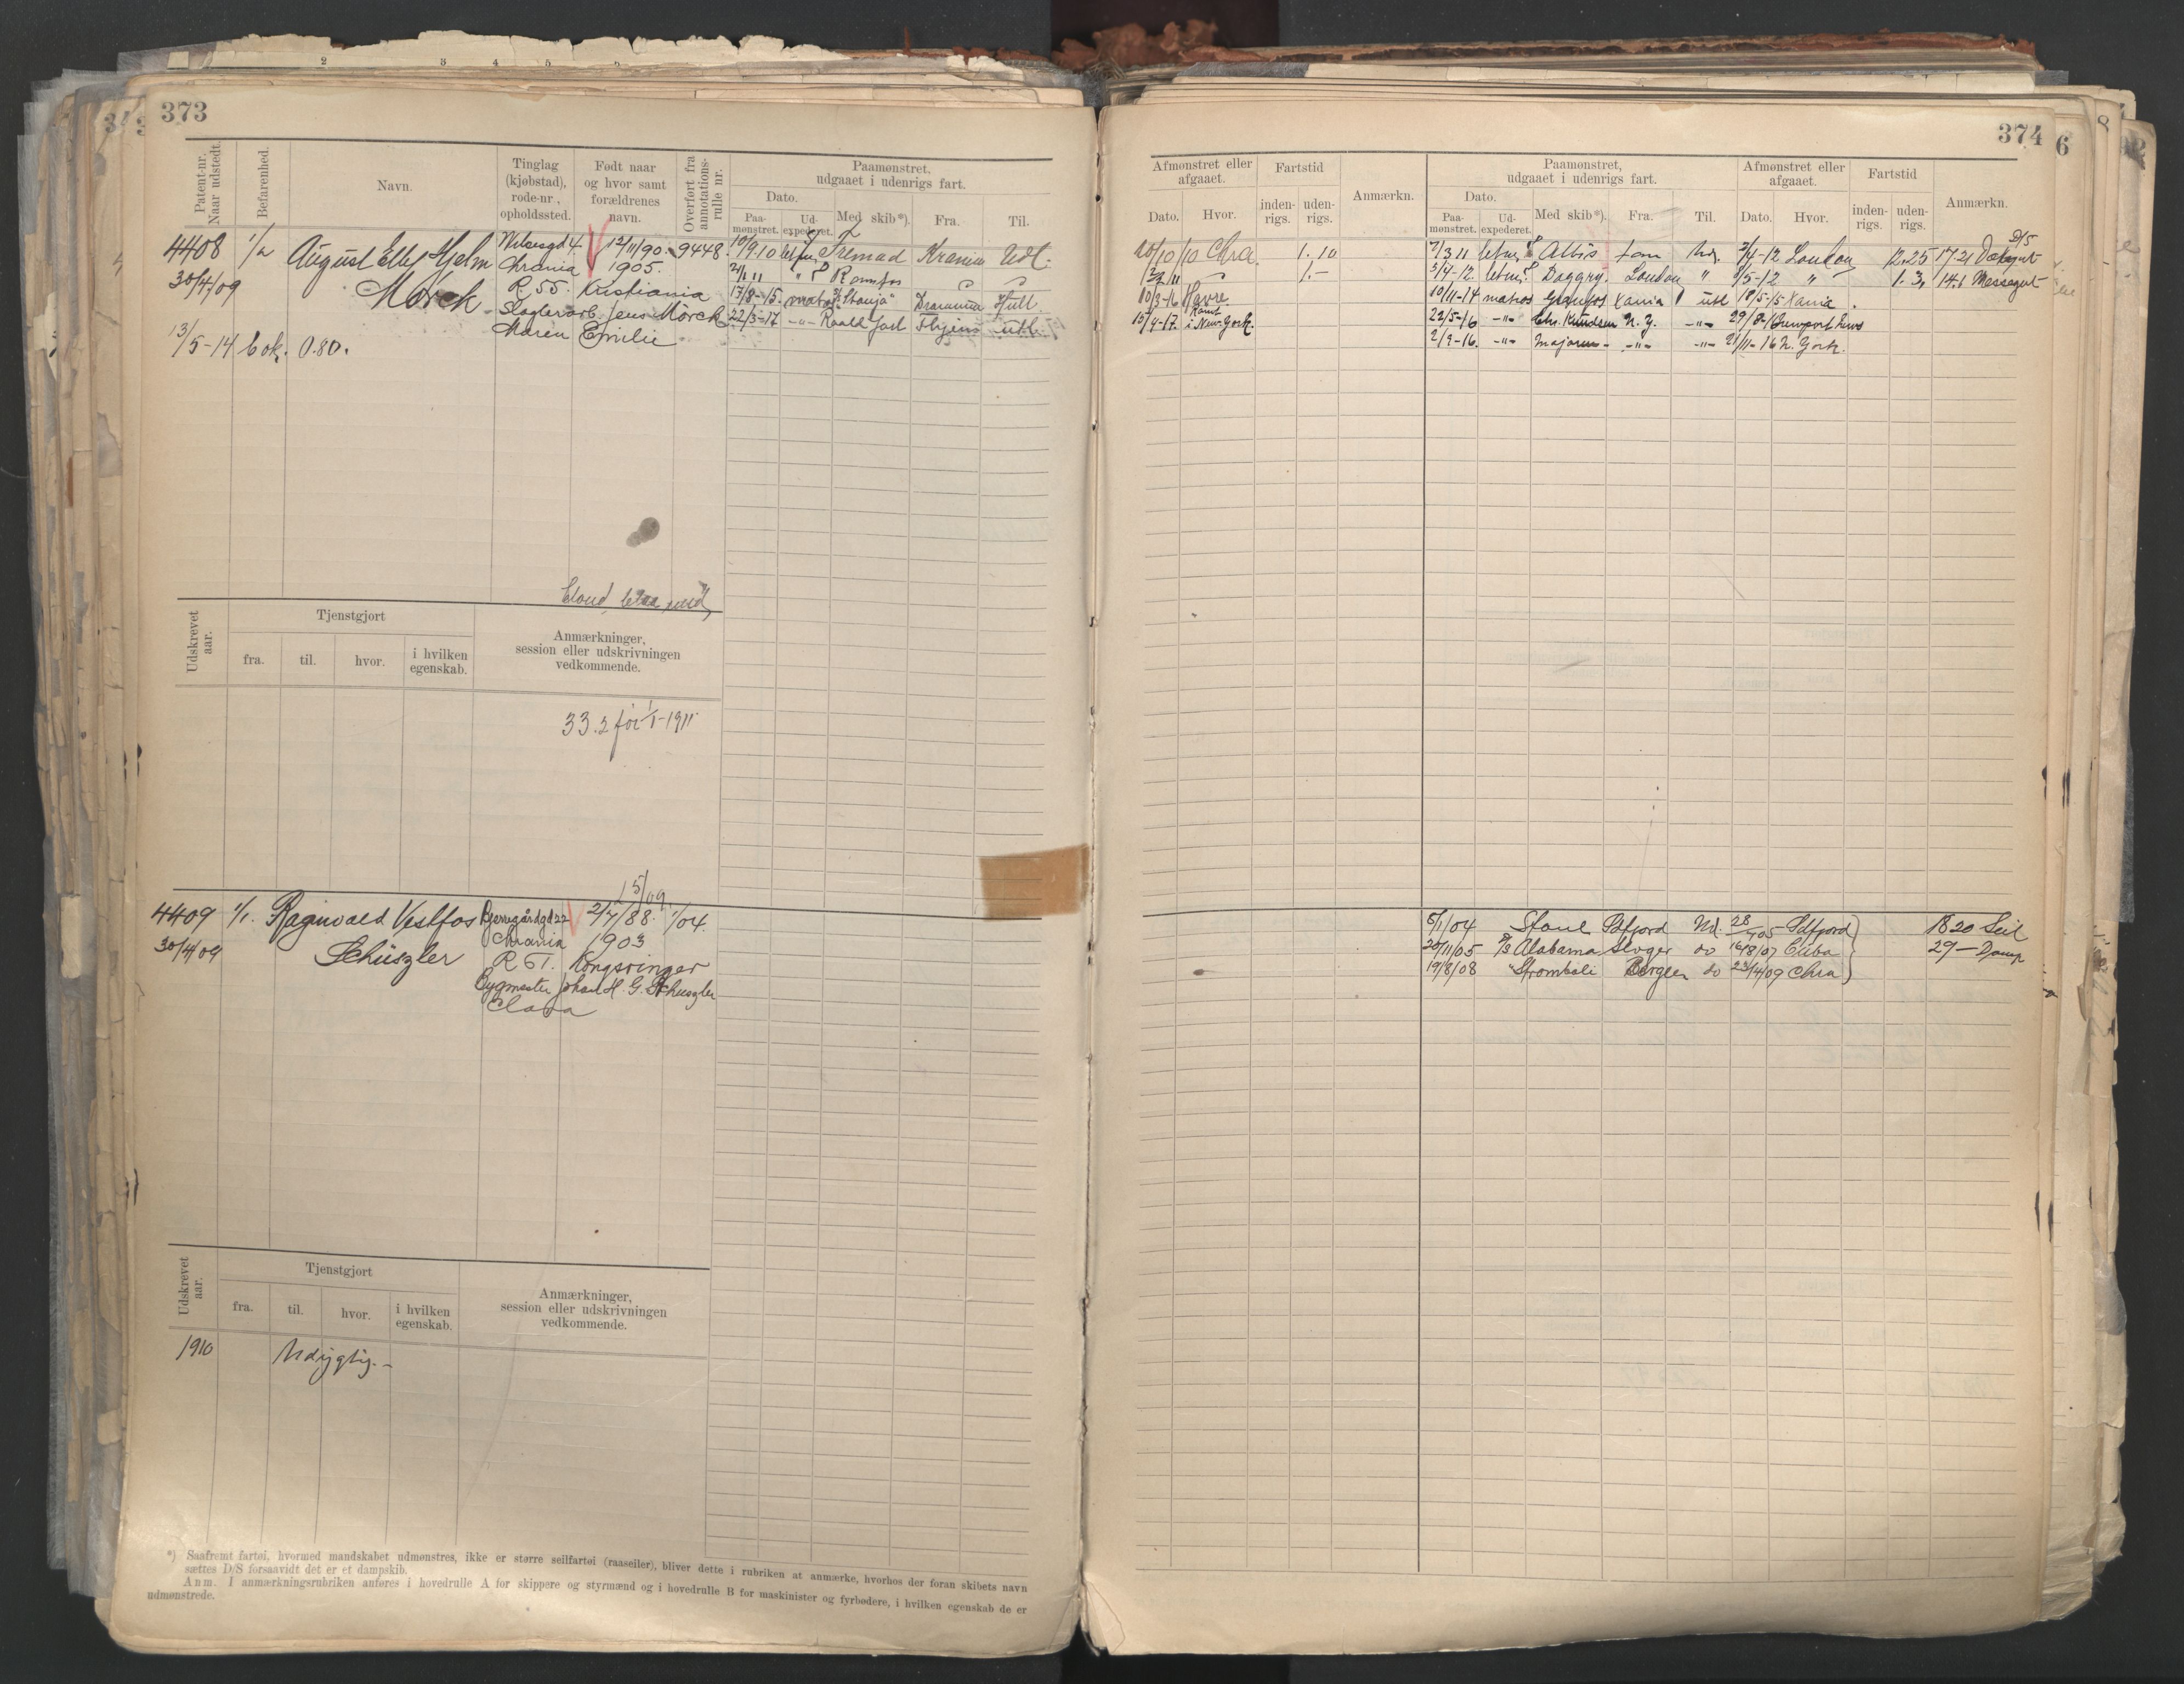 373
Patent-nr. Naar udstedt.
Befarenhed.
Navn.
Tinglag (kjøbstad), rode-nr., opholdssted.
Født naar og hvor samt forældrenes navn.
Overført fra annotations-rulle nr.
Paamønstret, udgaaet i udenrigs fart.
Dato.
Paa-mønstret.
Ud-expederet.
Med skib*).
Fra.
Til.
4408
30/4/09
August Elley Hjelm
Mørck
Nilsesgd 4
Chrania
R. 55.
12/11/90.
1905.
Kristiania
Slagterarb. Jens Mörck
Maren Emilie
9448
13/5-14 Cok. 0.80.
10/9 10 Fremad Krania Udl.
" Ramfos
17/8-15. matros "Stanja" Drammen Hull
22/3-17 -"- Roald Jarl utl.
Udskrevet aar.
Tjenstgjort
fra.
til.
hvor.
i hvilken egenskab.
Anmærkninger, session eller udskrivningen vedkommende.
33.2 för 1/1-1911
4409
30/4/09
1/1.
Ragnvald Vestfos
Schüszler
Bjerregårdgd 22
Chrania
R 61.
15/09.
2/7/88.
1903
1/04.
Kongsvinger
Bygmester Johan H. G. Schuszler
Clara
Udskrevet aar.
Tjenstgjort
fra.
til.
hvor.
i hvilken egenskab.
Anmærkninger, session eller udskrivningen vedkommende.
1910 Udygtig.-
*) Saafremt fartøi, hvormed mandskabet udmønstres, ikke er større seilfartøi (raaseiler), bliver dette i rubriken at anmærke, hvorhos der foran skibets navn
sættes D/S forsaavidt det er et dampskib.
Anm. I anmærkningsrubriken anføres i hovedrulle A for skippere og styrmænd og i hovedrulle B for maskinister og fyrbødere, i hvilken egenskab de er
udmønstrede.
374
6
Afmønstret eller afgaaet.
Dato.
Hvor.
Fartstid
inden-rigs.
uden-rigs.
Anmærkn.
Paamønstret, udgaaet i udenrigs fart.
Dato.
Paa-mønstret.
Ud-expederet.
Med skib*).
Fra.
Til.
Afmønstret eller afgaaet.
Dato.
Hvor.
Fartstid
inden-rigs.
uden-rigs.
Anmærkn.
20/10 10 Chra. 1.10
1.-
10/3-16 Havre.
15/4-17. Rømt i New-York.
7/3 11 Albis 2/4-12 London 12.25 17.21
D/S
3/4-12. Daggry. London " /5-12 " 1.3. 14.1 Messegut
10/11-14 matros Granfos Xania utl 18/5-15 Xania.
22/5-16 -"- Chr. Knudsen N.Y. -"- 29/8-16 Newport News
2/9-16. -"- Majoren -"- -"- 21/11-16 N. York.
5/1/04 Stanl Idfjord Ud. 28/05 Idfjord 18 20 Seil
20/11/05 D/S Alabama do 16/8/07 Cuba 29 - Damp
19/8/08 " Stromboli Bergen do 23/4/09 Chra